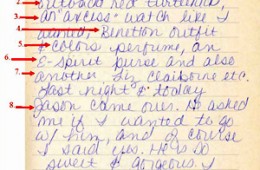 2. Outback red turtleneck,
3. an "excess" watch like I
4. wanted, Benetton outfit
5. colors perfume, an
6. e-spirit purse and also
7. another Liz claiborne etc.
Last night & today
8. Jason came over. He asked
me if I wanted to go
w/ him, and of course
I said yes. He is so
sweet & gorgeous. I